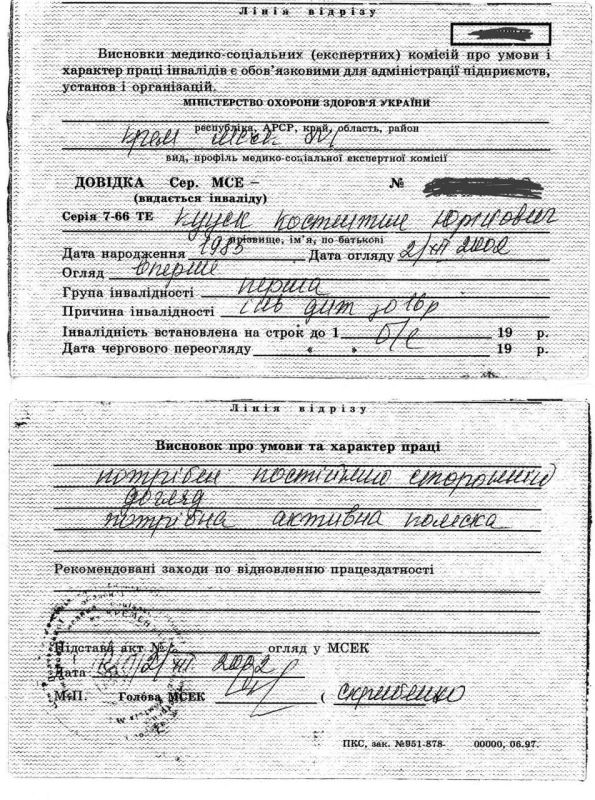 Лінія відрізу
Висновки медико-соціальних (експертних) комісій про умови і
характер праці інвалідів є обов'язковими для адміністрації підприємств,
установ і організацій.
МІНІСТЕРСТВО ОХОРОНИ ЗДОРОВ'Я УКРАЇНИ
республіка, АРСР, край, область, район
вид, профіль медико-соціальної експертної комісії
ДОВІДКА Сер. МСЕ – №
(видається інваліду)
Серія 7-66 ТЕ Юрійович
прізвище, ім'я, по батькові
Дата народження 1985 Дата огляду 2/XII 2002
Огляд вперше
Група інвалідності перша
Причина інвалідності інв дит до 16 р
Інвалідність встановлена на строк до 1 б/с 19 р.
Дата чергового переогляду « » 19 р.
Лінія відрізу
Висновок про умови та характер праці
потрібен постійний сторонній
догляд
потрібна активна коляска
Рекомендовані заходи по відновленню працездатності
Підстава акт № огляд у МСЕК
Дата 2/XII 2002
М.П. Голова МСЕК (
ПКС, зак. №951-878- 00000, 06.97.